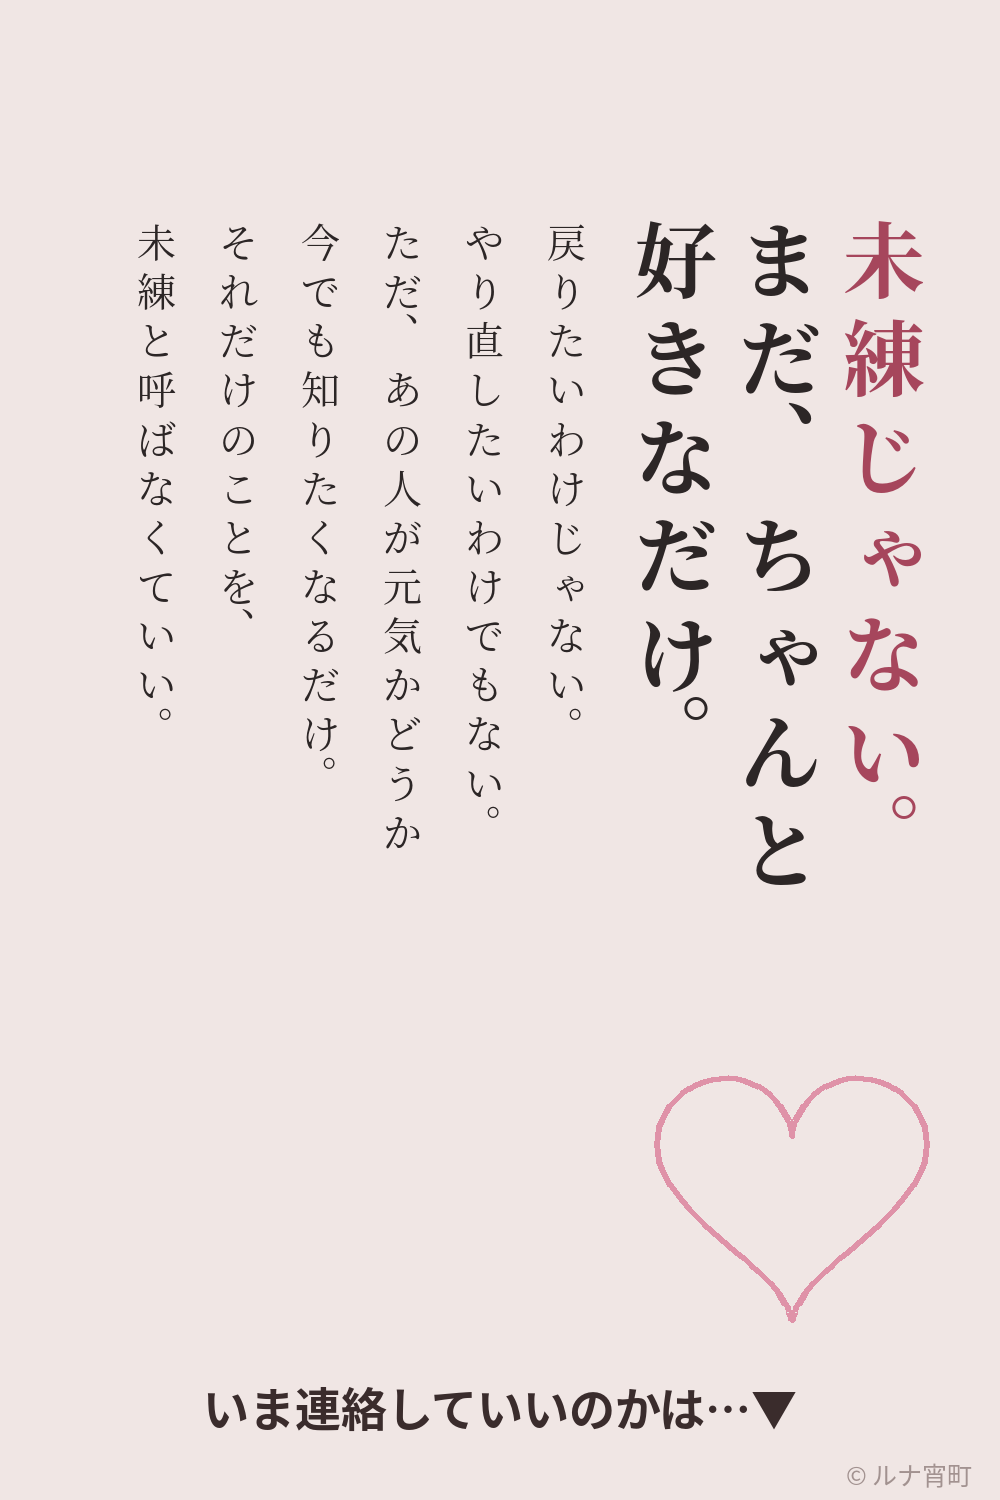 未練じゃない。
まだ、ちゃんと
好きなだけ。
戻りたいわけじゃない。
やり直したいわけでもない。
ただ、あの人が元気かどうか
今でも知りたくなるだけ。
それだけのことを、
未練と呼ばなくていい。
いま連絡していいのかは…▼
© ルナ宵町